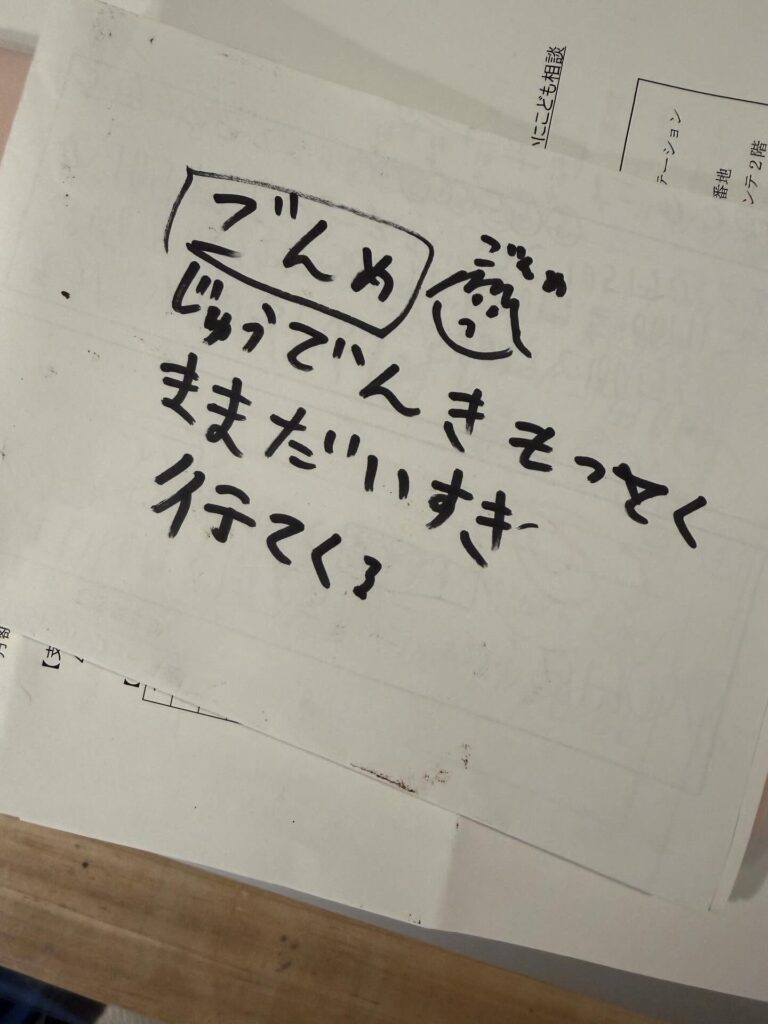 ごんめ
ごんめ
じゅうでんきもってく
ままだいすき
行てくる
にこども相談
テーション
番地
ンテ2階
【支